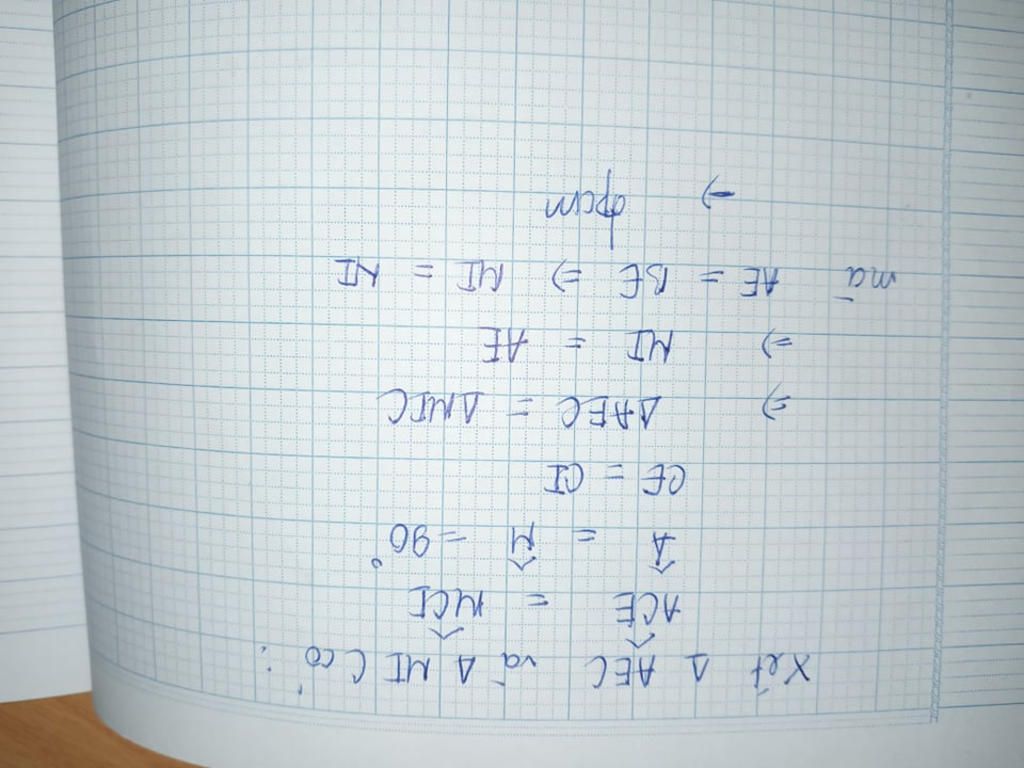 Xét Δ AEC và Δ MIC có :
ACE^ = MCI^
A^ = M^ = 90°
CE = CI
=> ΔAEC = ΔMIC
=> MI = AE
mà AE = BE => MI = NI
=> đpcm